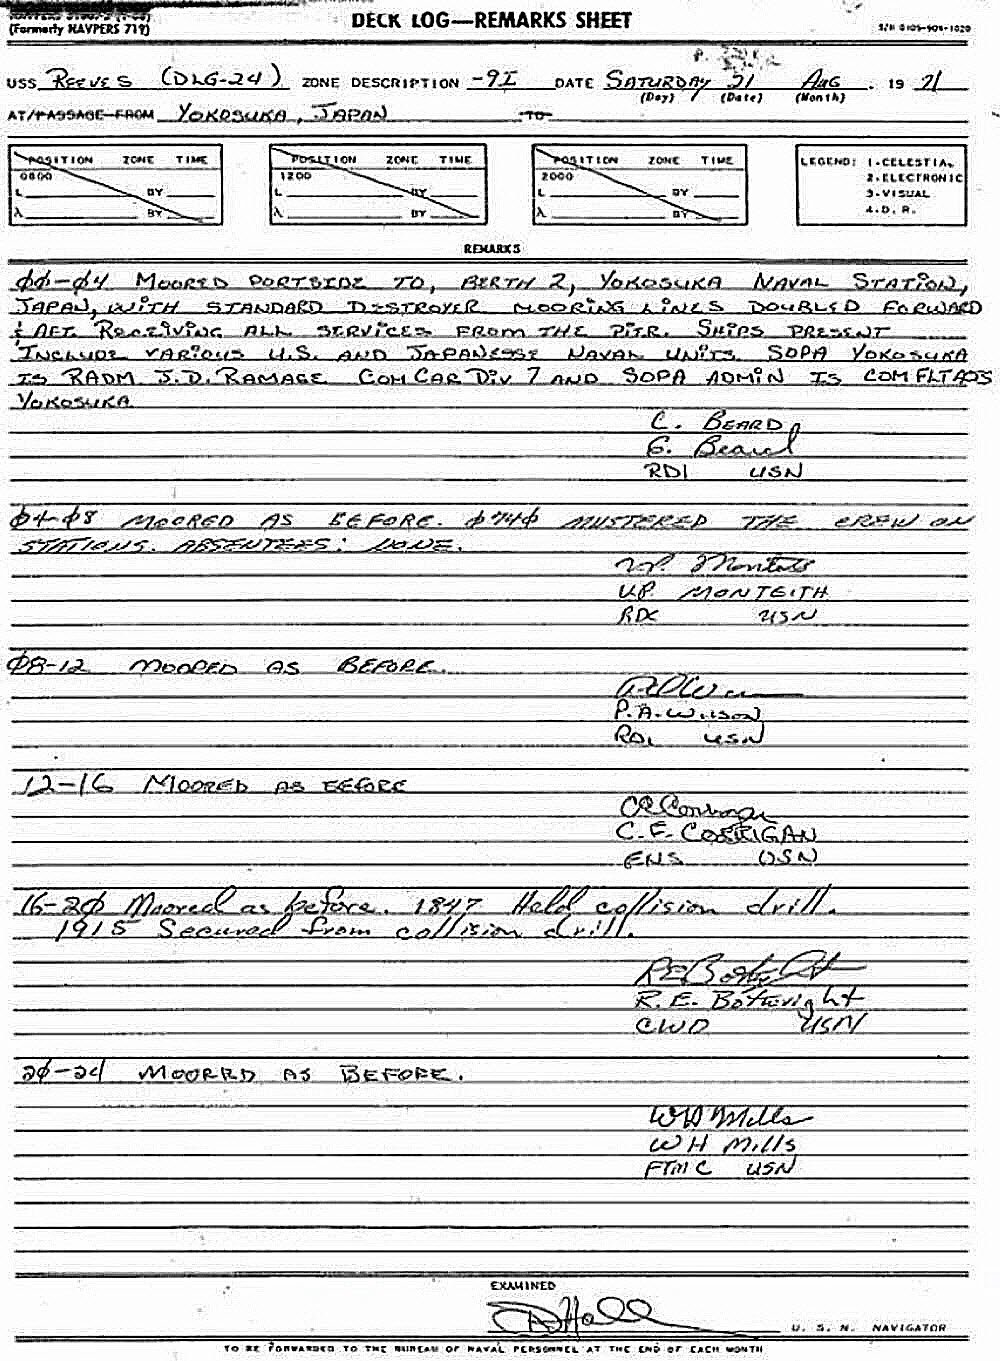 (Formerly NAVPERS 719)
DECK LOG—REMARKS SHEET
S/N 0105-501-1020
USS REEVES (DLG-24) ZONE DESCRIPTION -9I DATE SATURDAY 21 AUG . 19 71
(Day) (Date) (Month)
AT/PASSAGE FROM YOKOSUKA, JAPAN TO
POSITION ZONE TIME
0800
L BY
λ BY
POSITION ZONE TIME
1200
L BY
λ BY
POSITION ZONE TIME
2000
L BY
λ BY
LEGEND: 1-CELESTIAL
2-ELECTRONIC
3-VISUAL
4-D. R.
REMARKS
00-04 MOORED PORTSIDE TO, BERTH 2, YOKOSUKA NAVAL STATION,
JAPAN, WITH STANDARD DESTROYER MOORING LINES DOUBLED FORWARD
& AFT. RECEIVING ALL SERVICES FROM THE PIER. SHIPS PRESENT
INCLUDE VARIOUS U.S. AND JAPANESSE NAVAL UNITS. SOPA YOKOSUKA
IS RADM J.D. RAMAGE COMCARDIV 7 AND SOPA ADMIN IS COMFLTACTS
YOKOSUKA
C. BEARD
C. Beard
RD1 USN
04-08 MOORED AS BEFORE. 0740 MUSTERED THE CREW ON
STATIONS. ABSENTEES: NONE.
V.P. Monteith
V.P. MONTEITH
RDC USN
08-12 MOORED AS BEFORE.
P.A. WILSON
RD1 USN
12-16 MOORED AS BEFORE
C.E. CORRIGAN
ENS USN
16-20 Moored as before. 1847 Held collision drill.
1915 Secured from collision drill.
R. E. Botwright
CWO USN
20-24 MOORED AS BEFORE.
WH Mills
WH Mills
FTMC USN
EXAMINED
Hall
U. S. N. NAVIGATOR
TO BE FORWARDED TO THE BUREAU OF NAVAL PERSONNEL AT THE END OF EACH MONTH